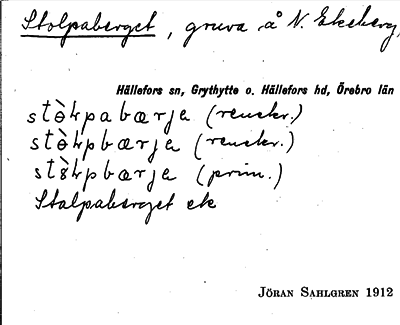 Stolpaberget, gruva å N. Ekeberg,
Hällefors sn, Grythytte o. Hällefors hd, Örebro län
(renskr.)
(renskr.)
(prim.)
Stalpaberget ek
JÖRAN SAHLGREN 1912